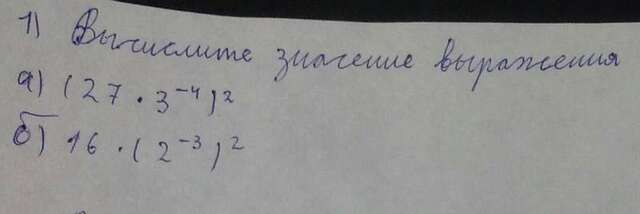 1) Вычислите значение выражения
а) (27 · 3⁻⁴)²
б) 16 · (2⁻³)²